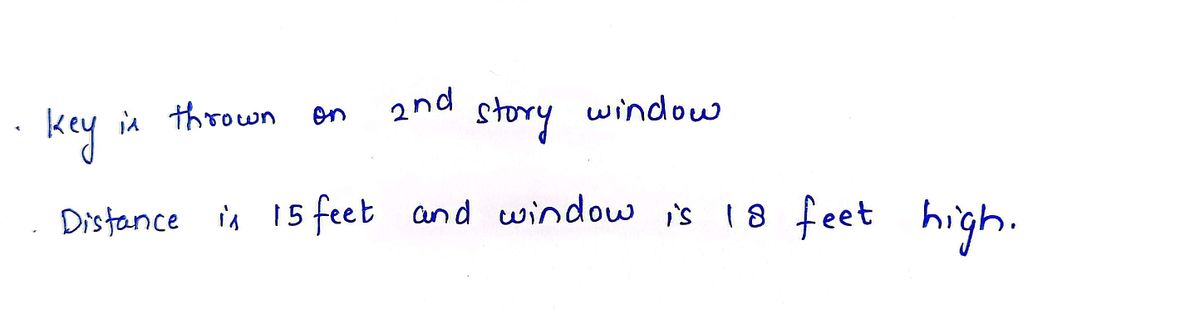 . key is thrown on 2nd story window
. Distance is 15 feet and window is 18 feet high.